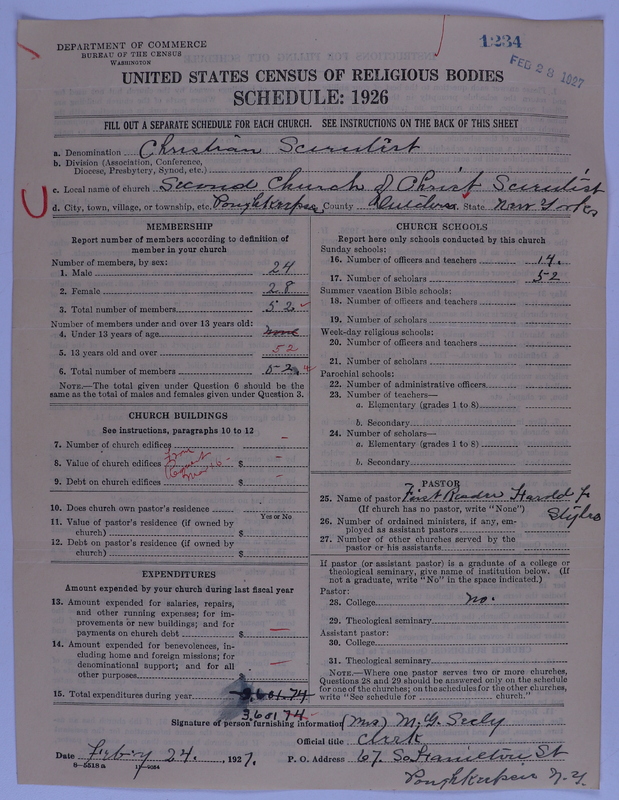 1234
FEB 28 1927
DEPARTMENT OF COMMERCE
BUREAU OF THE CENSUS
WASHINGTON
UNITED STATES CENSUS OF RELIGIOUS BODIES
SCHEDULE: 1926
FILL OUT A SEPARATE SCHEDULE FOR EACH CHURCH. SEE INSTRUCTIONS ON THE BACK OF THIS SHEET
a. Denomination Christian Scientist
b. Division (Association, Conference,
Diocese, Presbytery, Synod, etc.)
c. Local name of church Second Church of Christ Scientist
d. City, town, village, or township, etc. Poughkeepsie County Dutchess State New York
MEMBERSHIP
Report number of members according to definition of
member in your church
Number of members, by sex:
1. Male 24
2. Female 28
3. Total number of members 52
Number of members under and over 13 years old:
4. Under 13 years of age none
5. 13 years old and over 52
6. Total number of members 52
NOTE.—The total given under Question 6 should be the
same as the total of males and females given under Question 3.
CHURCH BUILDINGS
See instructions, paragraphs 10 to 12
7. Number of church edifices –
8. Value of church edifices $ –
9. Debt on church edifices $ –
10. Does church own pastor's residence
Yes or No
11. Value of pastor's residence (if owned by
church) $
12. Debt on pastor's residence (if owned by
church) $
EXPENDITURES
Amount expended by your church during last fiscal year
13. Amount expended for salaries, repairs,
and other running expenses; for im-
provements or new buildings; and for
payments on church debt $ —
14. Amount expended for benevolences, in-
cluding home and foreign missions; for
denominational support; and for all
other purposes —
15. Total expenditures during year 3,601.74
3,601.74
CHURCH SCHOOLS
Report here only schools conducted by this church
Sunday schools:
16. Number of officers and teachers 14.
17. Number of scholars 52
Summer vacation Bible schools:
18. Number of officers and teachers
19. Number of scholars
Week-day religious schools:
20. Number of officers and teachers
21. Number of scholars
Parochial schools:
22. Number of administrative officers
23. Number of teachers—
a. Elementary (grades 1 to 8)
b. Secondary
24. Number of scholars—
a. Elementary (grades 1 to 8)
b. Secondary
PASTOR
25. Name of pastor First Reader Harold J.
(If church has no pastor, write "None")
26. Number of ordained ministers, if any, em-
ployed as assistant pastors
27. Number of other churches served by the
pastor or his assistants
If pastor (or assistant pastor) is a graduate of a college or
theological seminary, give name of institution below. (If
not a graduate, write "No" in the space indicated.)
Pastor:
28. College no.
29. Theological seminary
Assistant pastor:
30. College
31. Theological seminary
NOTE.—Where one pastor serves two or more churches,
Questions 28 and 29 should be answered only on the schedule
for one of the churches; on the schedules for the other churches,
write "See schedule for church."
Signature of person furnishing information (Mrs) M. G. Seely
Official title Clerk
Date Feb'y 24, 1927. P. O. Address 67 So Hamilton St
Poughkeepsie N.Y.
8—5518a